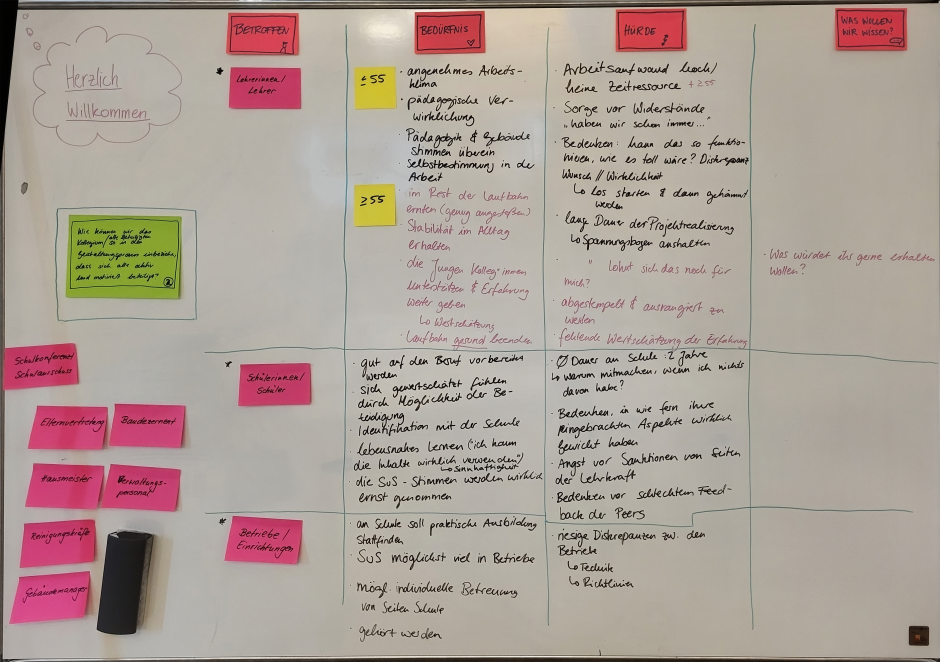 Herzlich
Willkommen
BETROFFEN
BEDÜRFNIS
HÜRDE
WAS WOLLEN
WIR WISSEN?
Lehrerinnen/
Lehrer
≤ 55
· angenehmes Arbeits-
klima
· pädagogische Ver-
wirklichung
· Pädagogik & Gebäude
stimmen überein
· Selbstbestimmung in der
Arbeit
≥ 55
· im Rest der Laufbahn
ernten (genug angestoßen)
· Stabilität im Alltag
erhalten
· die Jungen Kolleg*innen
unterstützen & Erfahrung
weiter geben
↳ Wertschätzung
· Laufbahn gesund beenden
· Arbeitsaufwand hoch/
keine Zeitressource + ≥55
· Sorge vor Widerstände
"haben wir schon immer..."
· Bedenken: kann das so funktio-
nieren, wie es toll wäre? Diskrepanz
Wunsch // Wirklichkeit
↳ los starten & dann gehämmt
werden
· lange Dauer der Projektrealisierung
↳ Spannungsbogen aushalten
· " lohnt sich das noch für
mich?
· abgestempelt & ausrangiert zu
werden
· fehlende Wertschätzung der Erfahrung
· Was würdet ihr gerne erhalten
wollen?
Wie können wir das
Kollegium/alle Beteiligten
so in den
Gestaltungsprozess einbeziehen,
dass sich alle aktiv
und motiviert beteiligen?
2
Schulkonferenz
Schulausschuss
Elternvertretung
Baudezernent
Hausmeister
Verwaltungs-
personal
Reinigungskräfte
Gebäudemanager
Schülerinnen/
Schüler
· gut auf den Beruf vorbereiten
werden
· sich gewertschätzt fühlen
durch Möglichkeit der Be-
teidigung
· Identifikation mit der Schule
· lebensnahes Lernen ("ich kann
die Inhalte wirklich verwenden")
↳ Sinnhaftigkeit
· die SuS-Stimmen werden wirklich
ernst genommen
· Ø Dauer an Schule: 2 Jahre
↳ warum mitmachen, wenn ich nichts
davon habe?
· Bedenken, in wie fern ihre
eingebrachten Aspekte wirklich
Gewicht haben
· Angst vor Sanktionen von Seiten
der Lehrkraft
· Bedenken vor schlechtem Feed-
back der Peers
Betriebe/
Einrichtungen
· an Schule soll praktische Ausbildung
stattfinden
· SuS möglichst viel in Betriebe
mögl. individuelle Betreuung
von Seiten Schule
· gehört werden
· riesige Diskrepanzen zw. den
Betriebe
↳ Technik
↳ Richtlinien